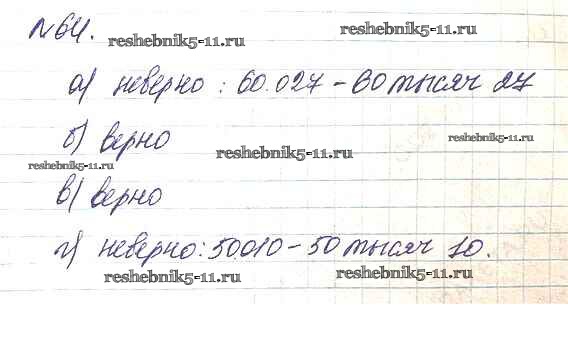 №64.
reshebnik5-11.ru reshebnik5-11.ru
а) неверно : 60.027 – 60 тысяч 27
б) верно
reshebnik5-11.ru reshebnik5-11.ru reshebnik5-11.ru
в) верно
г) неверно: 50010 – 50 тысяч 10.
reshebnik5-11.ru reshebnik5-11.ru